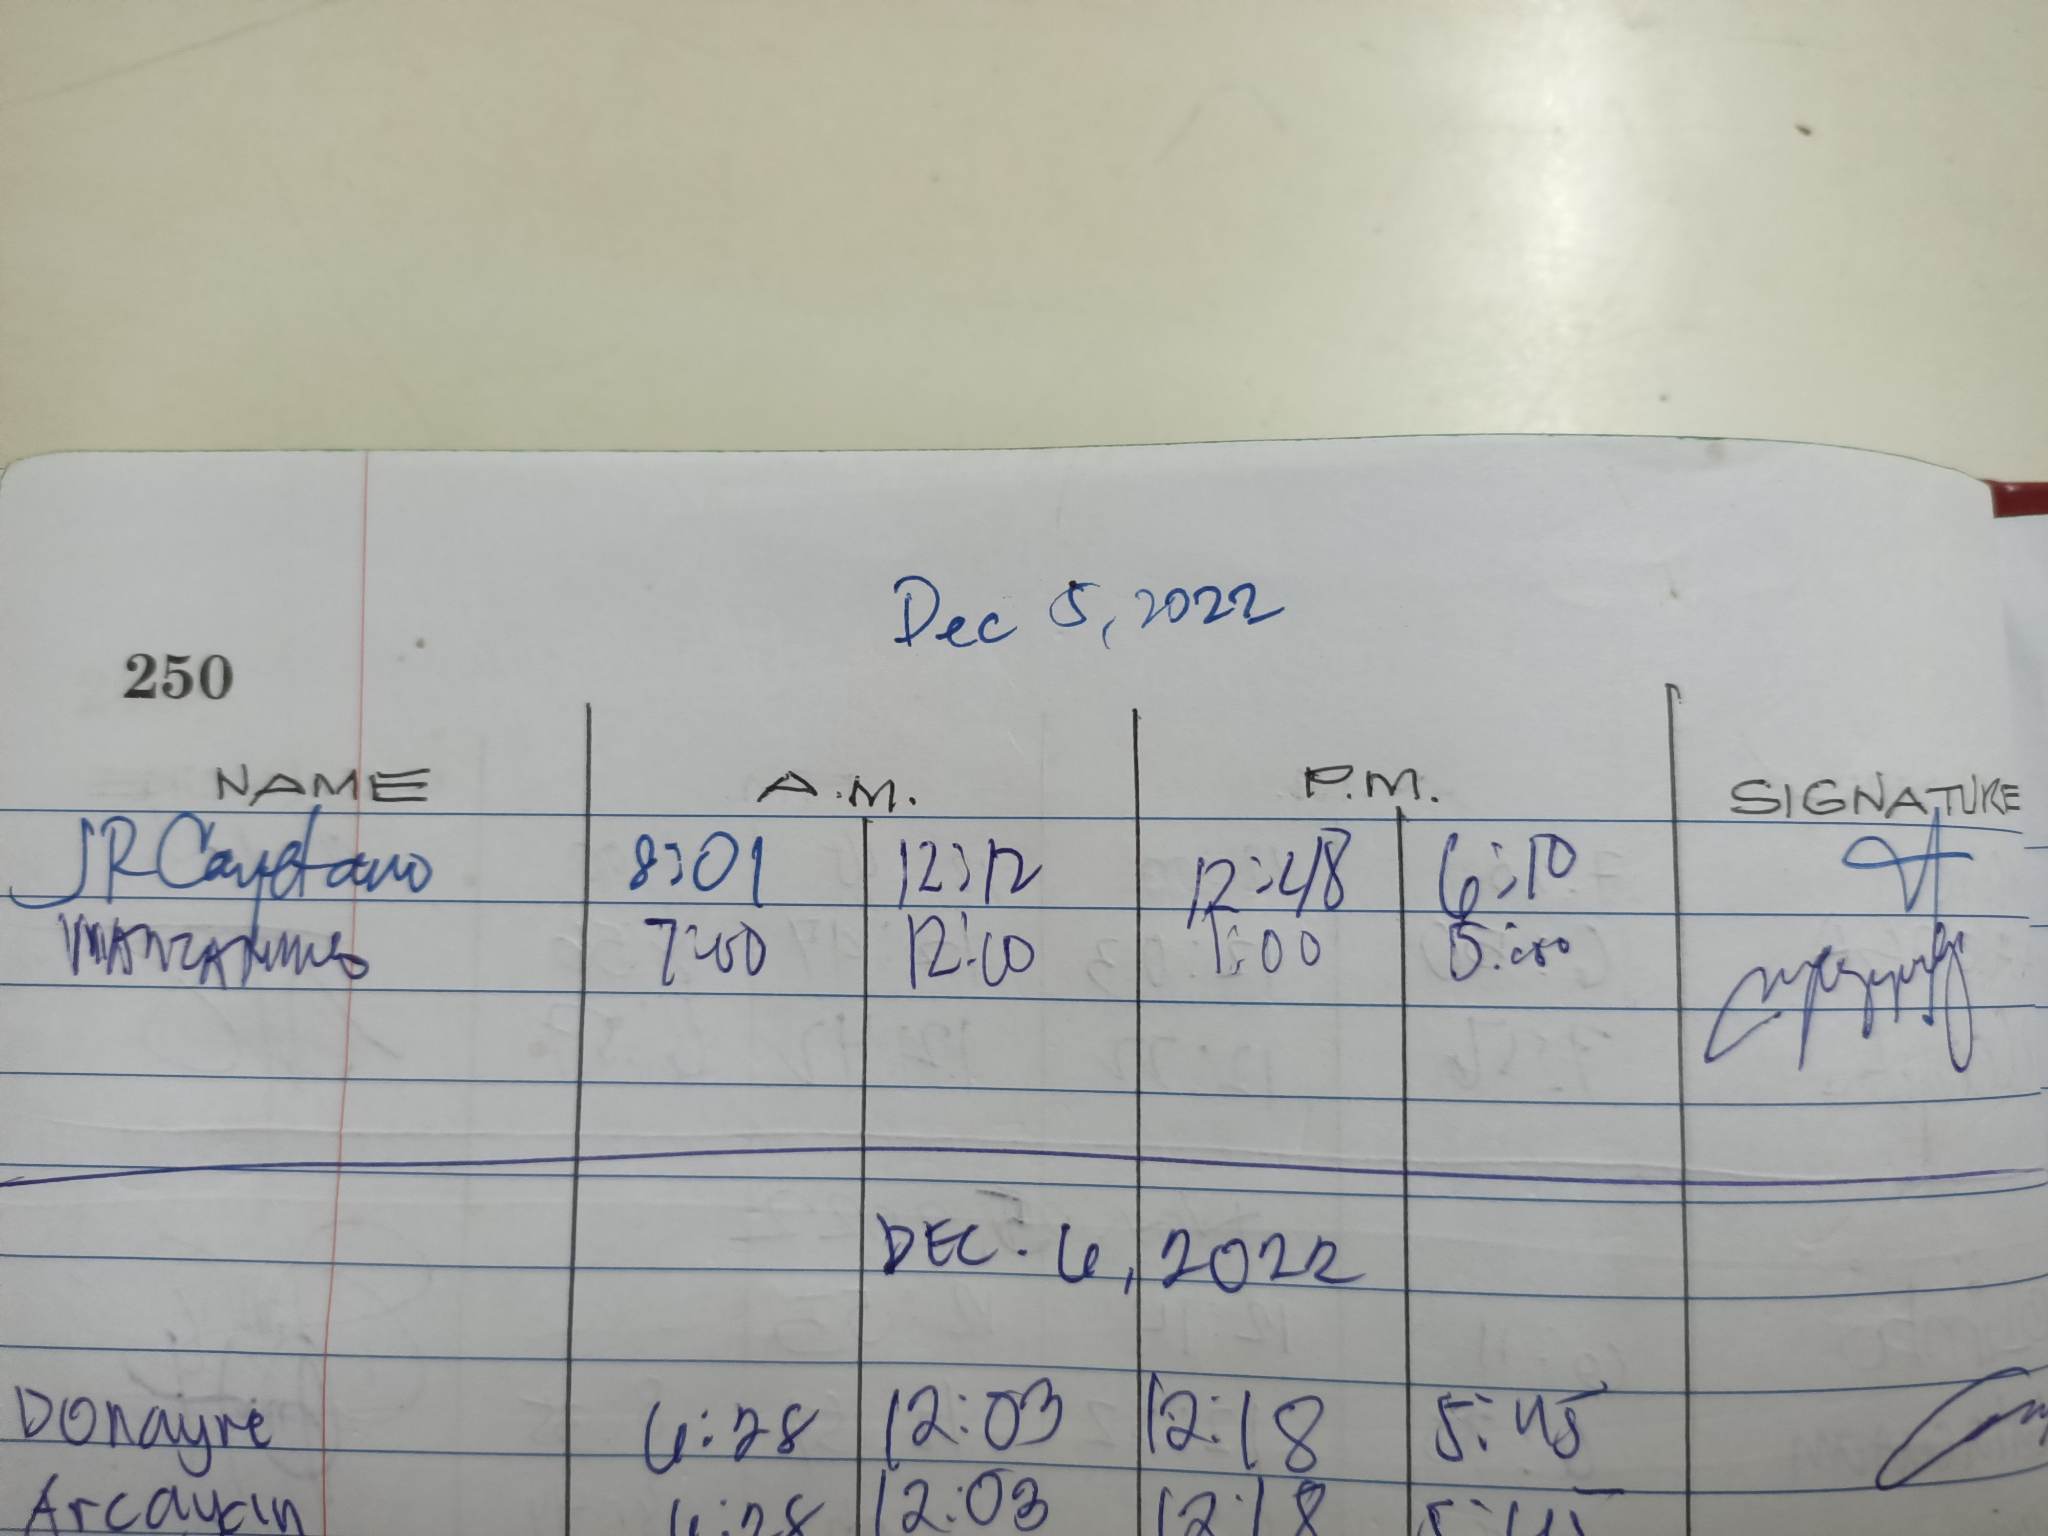 Dec 5, 2022
250
NAME A.M. P.M. SIGNATURE
JR Cayetano 8:01 12:12 12:48 6:10
7:00 12:00 1:00 5:00
DEC. 6, 2022
Donayre 6:28 12:03 12:18 5:45
Arcaycin 6:28 12:03 12:18 5:45